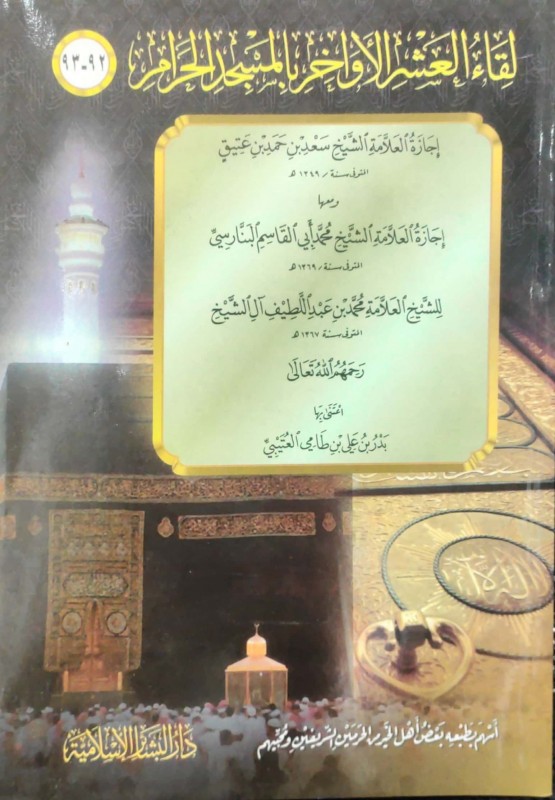 لِقَاءُ العَشْرِ الأَوَاخِرِ بِالمَسْجِدِ الحَرَامِ
٩٢-٩٣
إِجَازَةُ العَلَّامَةِ الشَّيْخِ سَعْدِ بْنِ حَمَدِ بْنِ عَتِيقٍ
المتوفى سنة ١٣٤٩ هـ
ومعها
إِجَازَةُ العَلَّامَةِ الشَّيْخِ مُحَمَّدٍ أَبِي القَاسِمِ البَنَارِسِيِّ
المتوفى سنة ١٣٦٩ هـ
لِلشَّيْخِ العَلَّامَةِ مُحَمَّدِ بْنِ عَبْدِ اللَّطِيفِ آلِ الشَّيْخِ
المتوفى سنة ١٣٦٧ هـ
رَحِمَهُمُ اللهُ تَعَالَى
اعْتَنَى بِهَا
بَدْرُ بْنُ عَلِيِّ بْنِ طَامِي العُتَيْبِيُّ
أَسْهَمَ بِطَبْعِهِ بَعْضُ أَهْلِ الخَيْرِ مِنَ الحَرَمَيْنِ الشَّرِيفَيْنِ وَمُحِبِّيهِم
دَارُ البَشَائِرِ الإِسْلَامِيَّةِ